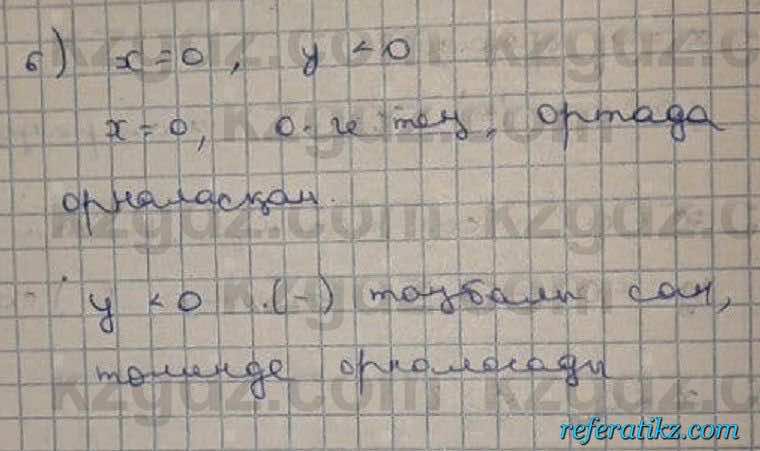 б) x = 0, y < 0
x = 0, 0-ге тең, ортада
орналасқан.
y < 0 (-) таңбалы сан,
төменде орналасады
referatikz.com